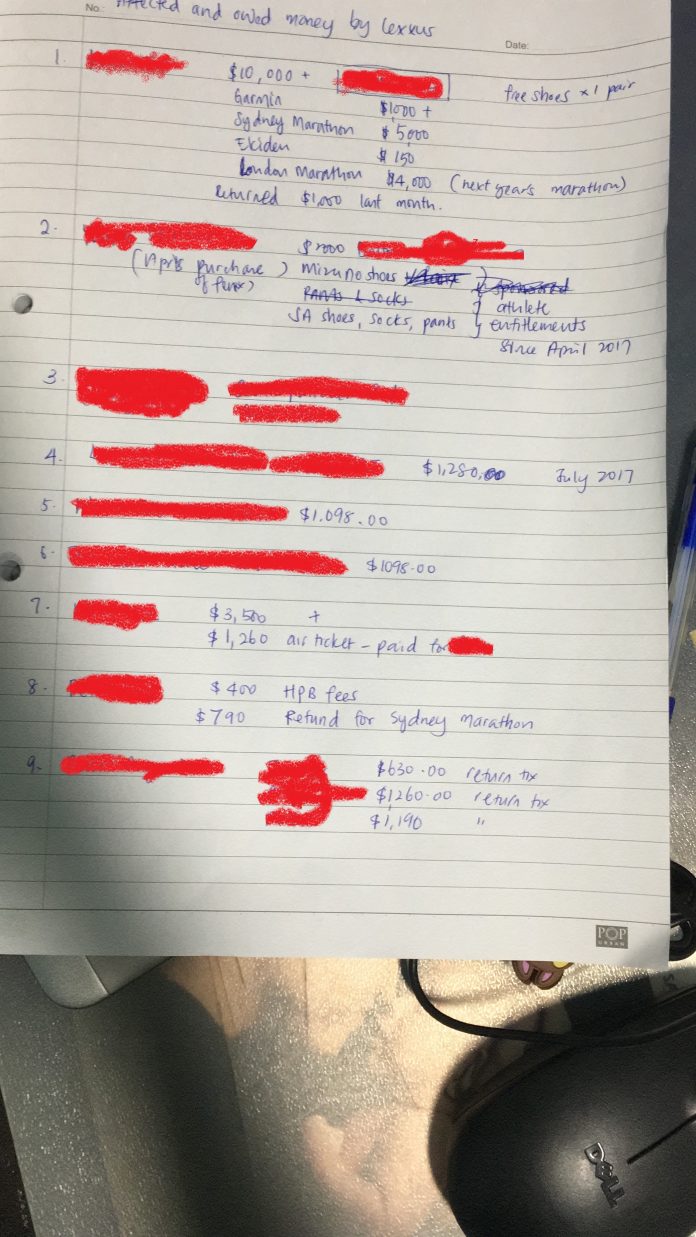 No.: Affected and owed money by Lexxus
Date:
1. $10,000 + free shoes x 1 pair
Garmin $1000 +
Sydney Marathon $5,000
Ekiden $150
London Marathon $4,000 (next year's marathon)
Returned $1,000 last month.
2. $2000
(April's purchase) Mizuno shoes
of
Pants & socks athlete
SA shoes, socks, pants entitlements
Since April 2017
3.
4. $1,280.00 July 2017
5. $1.098.00
6. $1098.00
7. $3,500 +
$1,260 air ticket - paid for
8. $400 HPB fees
$790 Refund for Sydney Marathon
9. $630.00 return tix
$1260.00 return tix
$1,190 "
POP
URBAN
DELL